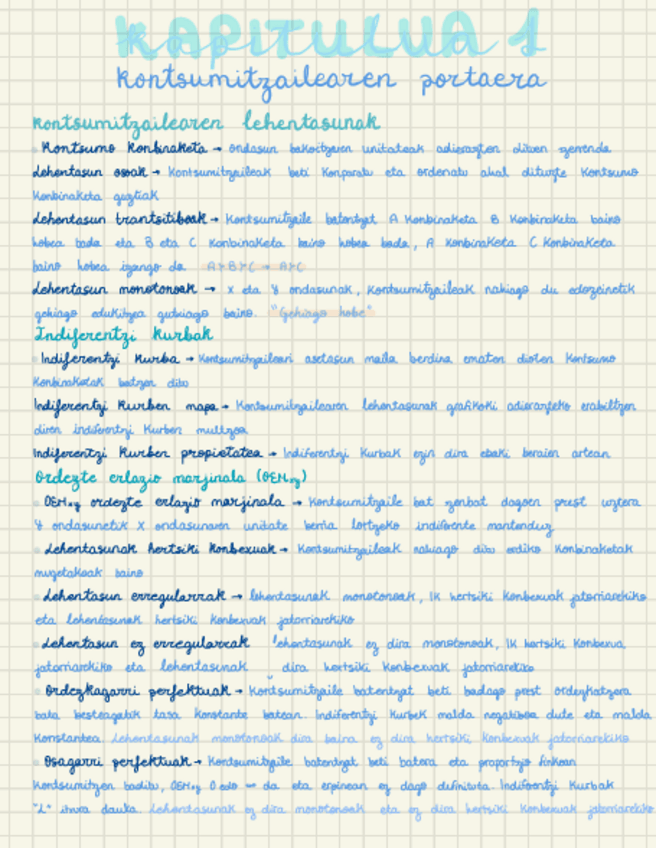 KAPITULUA 1
Kontsumitzailearen portaera
Kontsumitzailearen lehentasunak
Kontsumo Konbinaketa → ondasun bakoitzaren unitateak adierazten dituen zerrenda
Lehentasun osoak → Kontsumitzaileak beti Konparatu eta ordenatu ahal dituzte Kontsumo
Konbinaketa guztiak
Lehentasun trantsitiboak → Kontsumitzaile batentzat A Konbinaketa B Konbinaketa baino
hobea bada eta B eta C Konbinaketa baino hobea bada, A Konbinaketa C Konbinaketa
baino hobea izango da A>B>C → A>C
Lehentasun monotonoak → X eta Y ondasunak, Kontsumitzaileak nahiago du edozeinetik
gehiago edukitzea gutxiago baino. "Gehiago hobe"
Indiferentzi Kurbak
Indiferentzi Kurba → Kontsumitzaileari asetasun maila berdina ematen dioten Kontsumo
Konbinaketak batzen ditu
Indiferentzi Kurben mapa → Kontsumitzailearen lehentasunak grafikoki adierazteko erabiltzen
diren indiferentzi Kurben multzoa
Indiferentzi Kurben propietatea → Indiferentzi Kurbak ezin dira ebaki beraien artean
Ordezte erlazio marjinala (OEMxy)
OEMxy ordezte erlazio marjinala → Kontsumitzaile bat zenbat dagoen prest uztera
Y ondasunetik X ondasunaren unitate berria lortzeko indiferente mantenduz
Lehentasunak hertsiki Konbexuak → Kontsumitzaileak nahiago ditu erdiko Konbinaketak
muzetakoak baino
Lehentasun erregularrak → lehentasunak monotonoak, IK hertsiki Konbexuak jatorriarekiko
eta lehentasunak hertsiki Konbexuak jatorriarekiko
Lehentasun ez erregularrak lehentasunak ez dira monotonoak, IK hertsiki Konbexua,
jatorriarekiko eta lehentasunak dira hertsiki Konbexuak jatorriarekiko
Ordezkagarri perfektuak → Kontsumitzaile batentzat beti badago prest ordezkatzera
bata besteagatik tasa Konstante batean. Indiferentzi Kurbek malda negatiboa dute eta malda
Konstantea Lehentasunak monotonoak dira baina ez dira hertsiki Konbexuak jatorriarekiko
Osagarri perfektuak → Kontsumitzaile batentzat beti batera eta proportzio finkoan
Kontsumitzen baditu, OEMxy 0 edo ∞ da eta erpinean ez dago definituta Indiferentzi Kurbak
"L" itxura dauka Lehentasunak ez dira monotonoak eta ez dira hertsiki Konbexuak jatorriarekiko